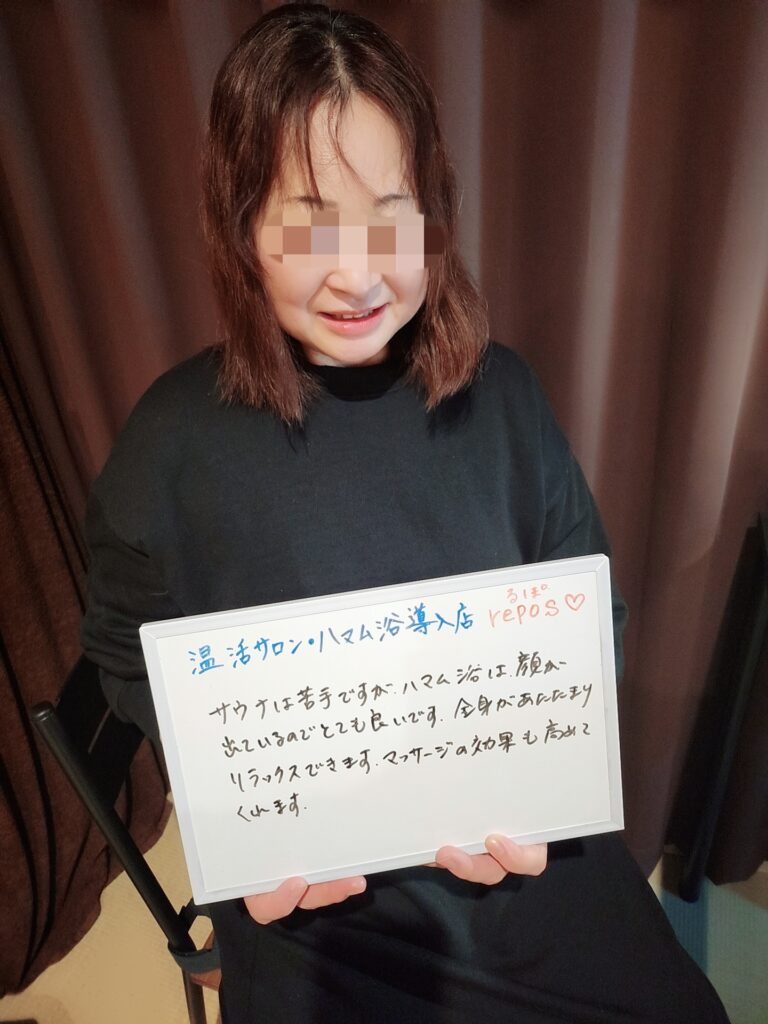 温活サロン・ハマム浴導入店 repos♡
るぽ。
サウナは苦手ですが、ハマム浴は、顔が
出ているのでとても良いです。全身があたたまり
リラックスできます。マッサージの効果も高めて
くれます。